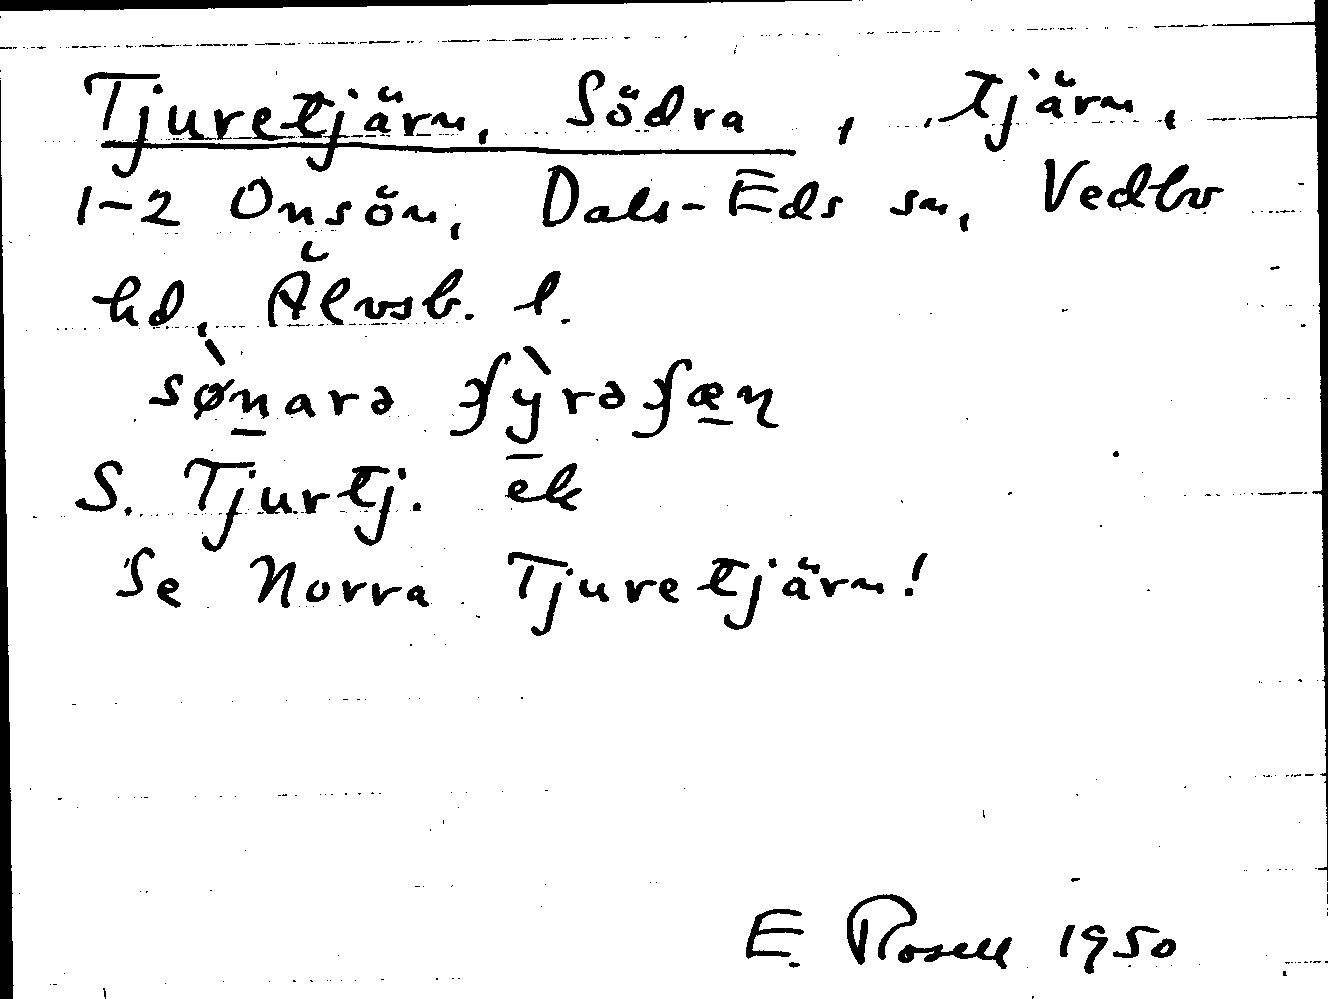 Tjuretjärn, Södra, tjärn,
1-2 Onsön, Dals-Eds sn, Vedbo
hd, Älvsb. l.
sø̀narə ʄỳrəʄæɳ
S. Tjurtj. ek
Se Norra Tjuretjärn!
E. Rosell 1950